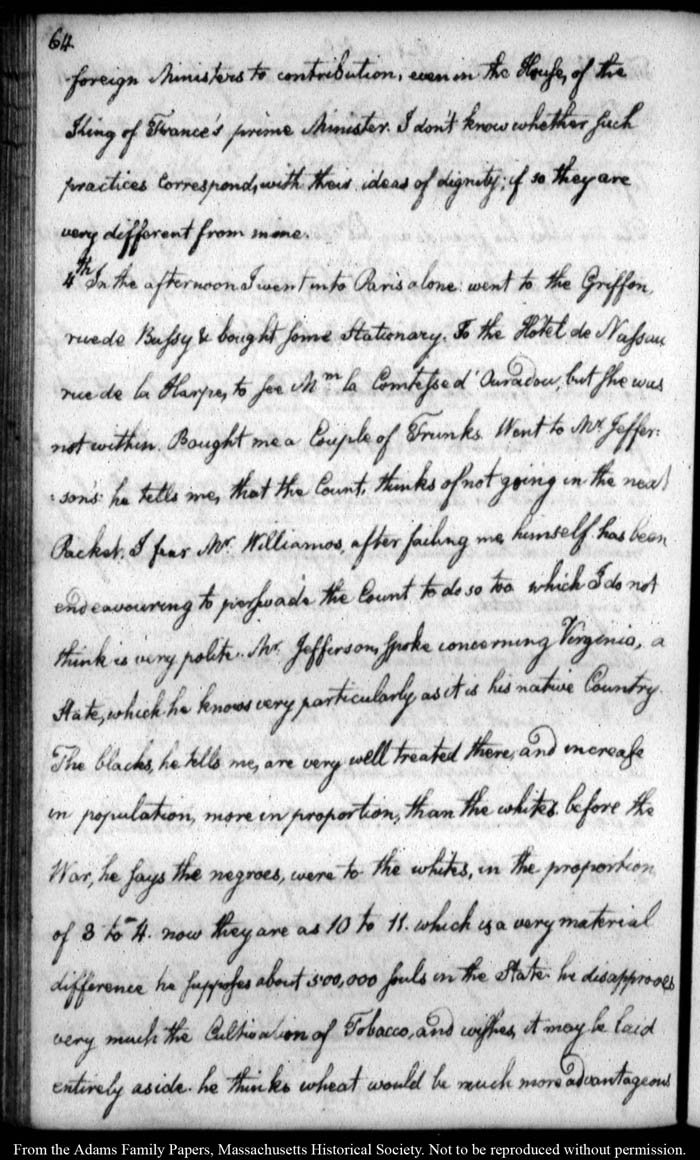 64
foreign Ministers to contribution, even in the House, of the
King of France's prime Minister. I don't know whether such
practices correspond, with their ideas of dignity; if so they are
very different from mine.
4th In the afternoon I went into Paris alone: went to the Griffon,
rue de Bussy & bought some Stationary. To the Hotel de Nassau
rue de la Harpe, to see Mm la Comtesse d'Ouradou, but she was
not within. Bought me a Couple of Trunks. Went to Mr Jeffer:
:son's: he tells me, that the Count, thinks of not going in the next
Packet. I fear Mr. Williamos, after failing me, himself has been
endeavouring to perswade the Count to do so too which I do not
think is very polite. Mr. Jefferson, spoke concerning Virginia, a
State, which he knows very particularly as it is his native Country.
The blacks, he tells me, are very well treated there, and increase
in population, more in proportion, than the whites. before the
War, he says the negroes, were to the whites, in the proportion
of 3 to 4. now they are as 10 to 11. which is a very material
difference he supposes about 500,000 souls in the State. he disapproves
very much the Cultivation of Tobacco, and wishes, it may be laid
entirely aside. he thinks wheat would be much more advantageous
From the Adams Family Papers, Massachusetts Historical Society. Not to be reproduced without permission.